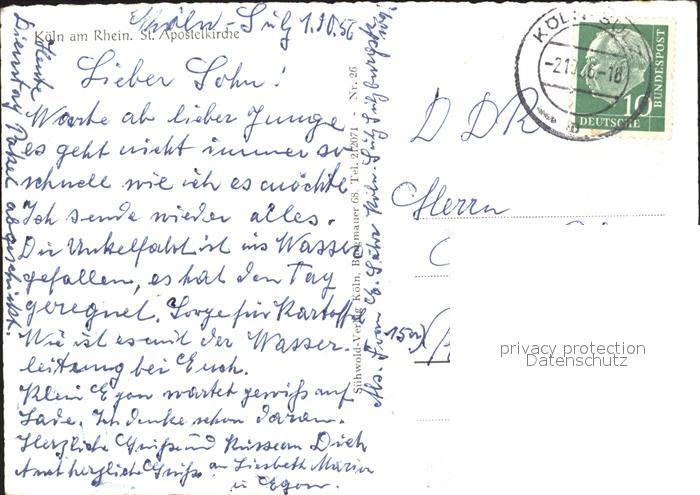 Köln-Sülz 1.10.56
Köln am Rhein. St. Apostelkirche
Lieber Sohn!
Warte ab lieber Junge
es geht nicht immer so
schnell wie ich es möchte
Ich sende wieder alles.
Die Unkelfahrt ist ins Wasser
gefallen, es hat den Tag
geregnet. Sorge für Kartoffel
Wie ist es mit der Wasser-
leitung bei Euch.
Klein Egon wartet gewiß auf
Lade. Ich denke schon daran.
Herzliche Grüße und Küsse an Dich
Auch herzliche Grüße an Liesbeth Maria
u Egon.
Heute
Dienstag Paket abgeschickt.
Sühwold-Verlag Köln, Burgmauer 68. Tel. 212071 - Nr. 26
Abs. Frau Köln-Sülz
KÖLN-SÜLZ
-2.10.56-18
b
10
DEUTSCHE
BUNDESPOST
DDR
Herrn
15a)
privacy protection
Datenschutz